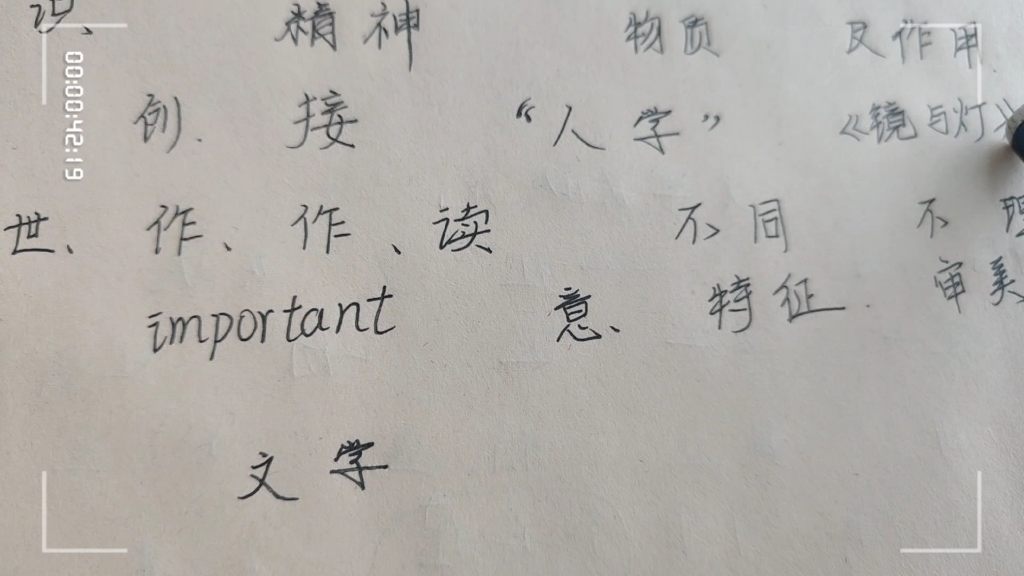 识、 精神 物质 反作用.
例. 接 “人学” 《镜与灯》
世、 作、 作、读 不同 不
important 意、 特征. 审美
文学
00:00:42:19